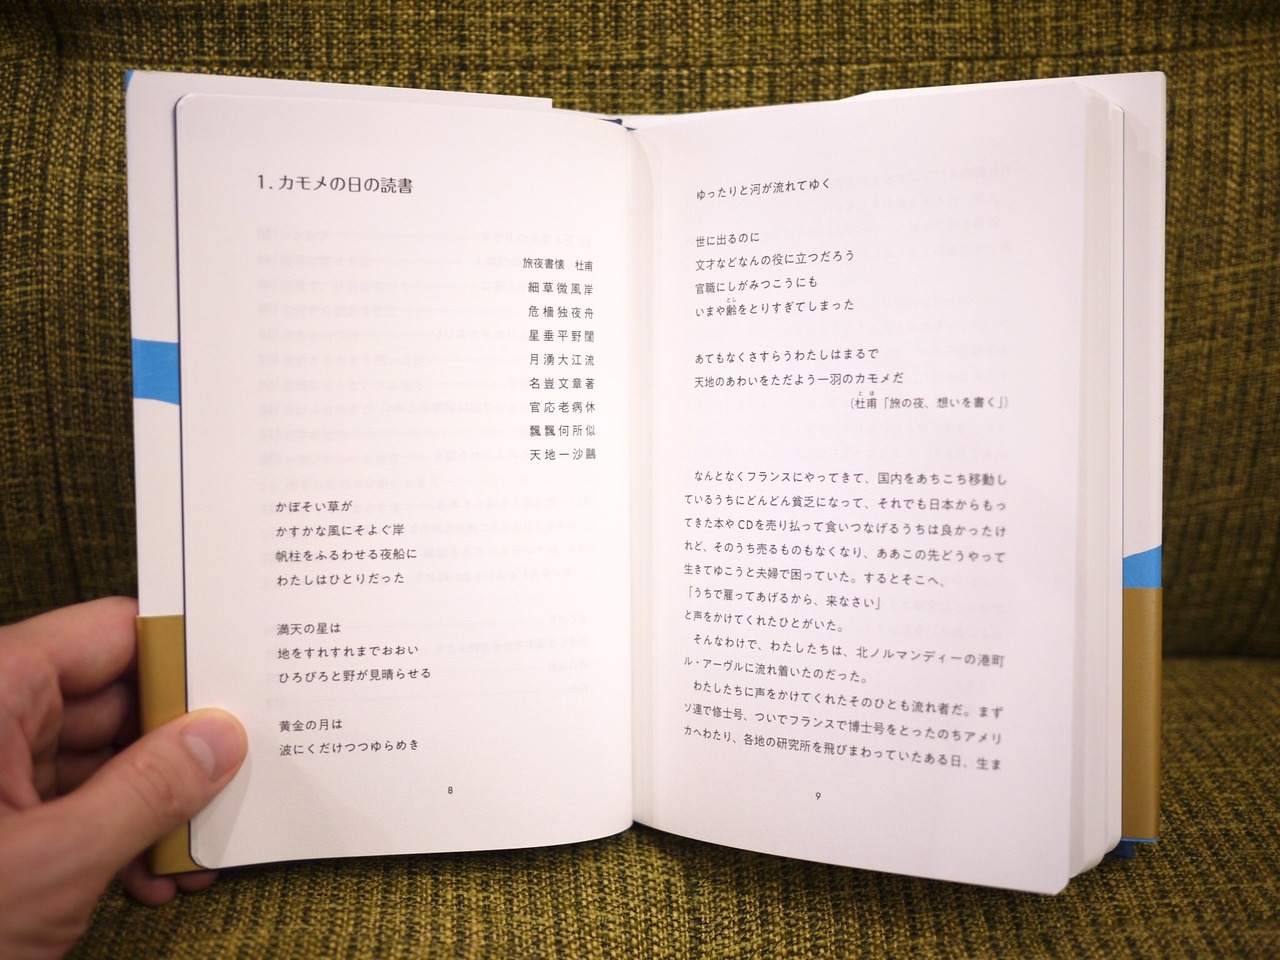 1. カモメの日の読書
旅夜書懐　杜甫
細草微風岸
危檣独夜舟
星垂平野闊
月湧大江流
名豈文章著
官応老病休
飄飄何所似
天地一沙鷗
かぼそい草が
かすかな風にそよぐ岸
帆柱をふるわせる夜船に
わたしはひとりだった
満天の星は
地をすれすれまでおおい
ひろびろと野が見晴らせる
黄金の月は
波にくだけつつゆらめき
8
ゆったりと河が流れてゆく
世に出るのに
文才などなんの役に立つだろう
官職にしがみつこうにも
いまや齢をとりすぎてしまった
あてもなくさすらうわたしはまるで
天地のあわいをただよう一羽のカモメだ
（杜甫「旅の夜、想いを書く」）
なんとなくフランスにやってきて、国内をあちこち移動し
ているうちにどんどん貧乏になって、それでも日本からもっ
てきた本やCDを売り払って食いつなげるうちは良かったけ
れど、そのうち売るものもなくなり、ああこの先どうやって
生きてゆこうと夫婦で困っていた。するとそこへ、
「うちで雇ってあげるから、来なさい」
と声をかけてくれたひとがいた。
そんなわけで、わたしたちは、北ノルマンディーの港町
ル・アーヴルに流れ着いたのだった。
わたしたちに声をかけてくれたそのひとも流れ者だ。まず
ソ連で修士号、ついでフランスで博士号をとったのちアメリ
カへわたり、各地の研究所を飛びまわっていたある日、生ま
9